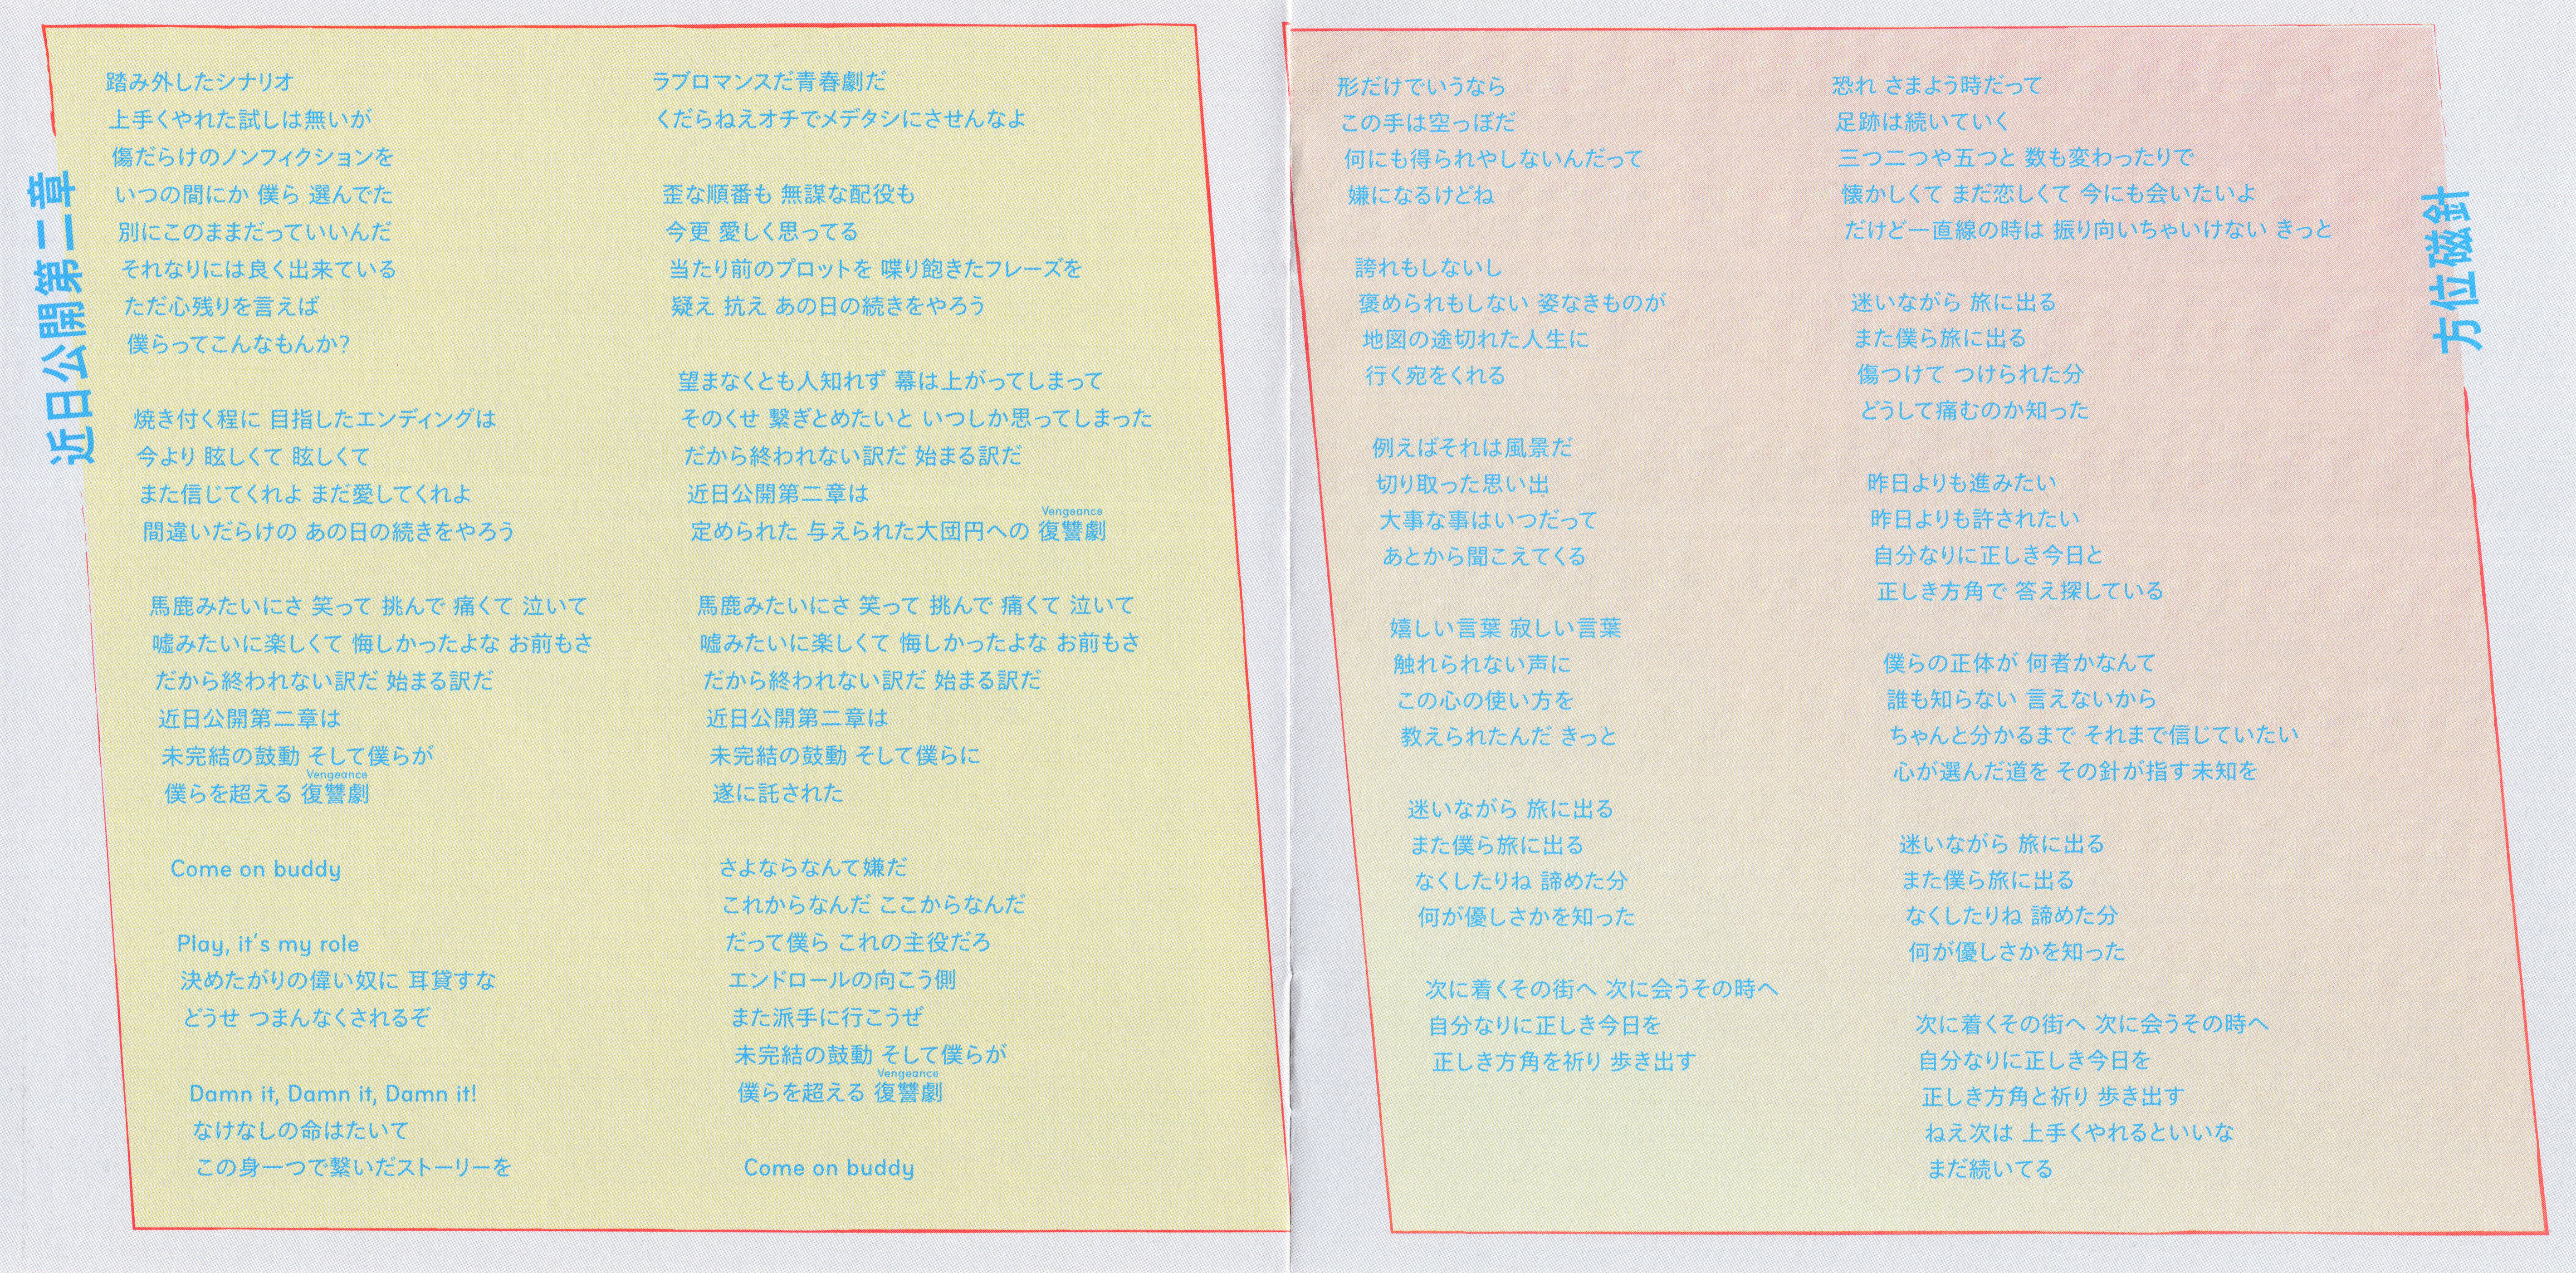 近日公開第二章
踏み外したシナリオ
上手くやれた試しは無いが
傷だらけのノンフィクションを
いつの間にか 僕ら 選んでた
別にこのままだっていいんだ
それなりには良く出来ている
ただ心残りを言えば
僕らってこんなもんか?
焼き付く程に 目指したエンディングは
今より 眩しくて 眩しくて
また信じてくれよ まだ愛してくれよ
間違いだらけの あの日の続きをやろう
馬鹿みたいにさ 笑って 挑んで 痛くて 泣いて
嘘みたいに楽しくて 悔しかったよな お前もさ
だから終われない訳だ 始まる訳だ
近日公開第二章は
未完結の鼓動 そして僕らが
Vengeance
僕らを超える 復讐劇
Come on buddy
Play, it's my role
決めたがりの偉い奴に 耳貸すな
どうせ つまんなくされるぞ
Damn it, Damn it, Damn it!
なけなしの命はたいて
この身一つで繋いだストーリーを
ラブロマンスだ青春劇だ
くだらねえオチでメデタシにさせんなよ
歪な順番も 無謀な配役も
今更 愛しく思ってる
当たり前のプロットを 喋り飽きたフレーズを
疑え 抗え あの日の続きをやろう
望まなくとも人知れず 幕は上がってしまって
そのくせ 繋ぎとめたいと いつしか思ってしまった
だから終われない訳だ 始まる訳だ
近日公開第二章は
Vengeance
定められた 与えられた大団円への 復讐劇
馬鹿みたいにさ 笑って 挑んで 痛くて 泣いて
嘘みたいに楽しくて 悔しかったよな お前もさ
だから終われない訳だ 始まる訳だ
近日公開第二章は
未完結の鼓動 そして僕らに
遂に託された
さよならなんて嫌だ
これからなんだ ここからなんだ
だって僕ら これの主役だろ
エンドロールの向こう側
また派手に行こうぜ
未完結の鼓動 そして僕らが
Vengeance
僕らを超える 復讐劇
Come on buddy
方位磁針
形だけでいうなら
この手は空っぽだ
何にも得られやしないんだって
嫌になるけどね
誇れもしないし
褒められもしない 姿なきものが
地図の途切れた人生に
行く宛をくれる
例えばそれは風景だ
切り取った思い出
大事な事はいつだって
あとから聞こえてくる
嬉しい言葉 寂しい言葉
触れられない声に
この心の使い方を
教えられたんだ きっと
迷いながら 旅に出る
また僕ら旅に出る
なくしたりね 諦めた分
何が優しさかを知った
次に着くその街へ 次に会うその時へ
自分なりに正しき今日を
正しき方角を祈り 歩き出す
恐れ さまよう時だって
足跡は続いていく
三つ二つや五つと 数も変わったりで
懐かしくて まだ恋しくて 今にも会いたいよ
だけど一直線の時は 振り向いちゃいけない きっと
迷いながら 旅に出る
また僕ら旅に出る
傷つけて つけられた分
どうして痛むのか知った
昨日よりも進みたい
昨日よりも許されたい
自分なりに正しき今日と
正しき方角で 答え探している
僕らの正体が 何者かなんて
誰も知らない 言えないから
ちゃんと分かるまで それまで信じていたい
心が選んだ道を その針が指す未知を
迷いながら 旅に出る
また僕ら旅に出る
なくしたりね 諦めた分
何が優しさかを知った
次に着くその街へ 次に会うその時へ
自分なりに正しき今日を
正しき方角と祈り 歩き出す
ねえ次は 上手くやれるといいな
まだ続いてる